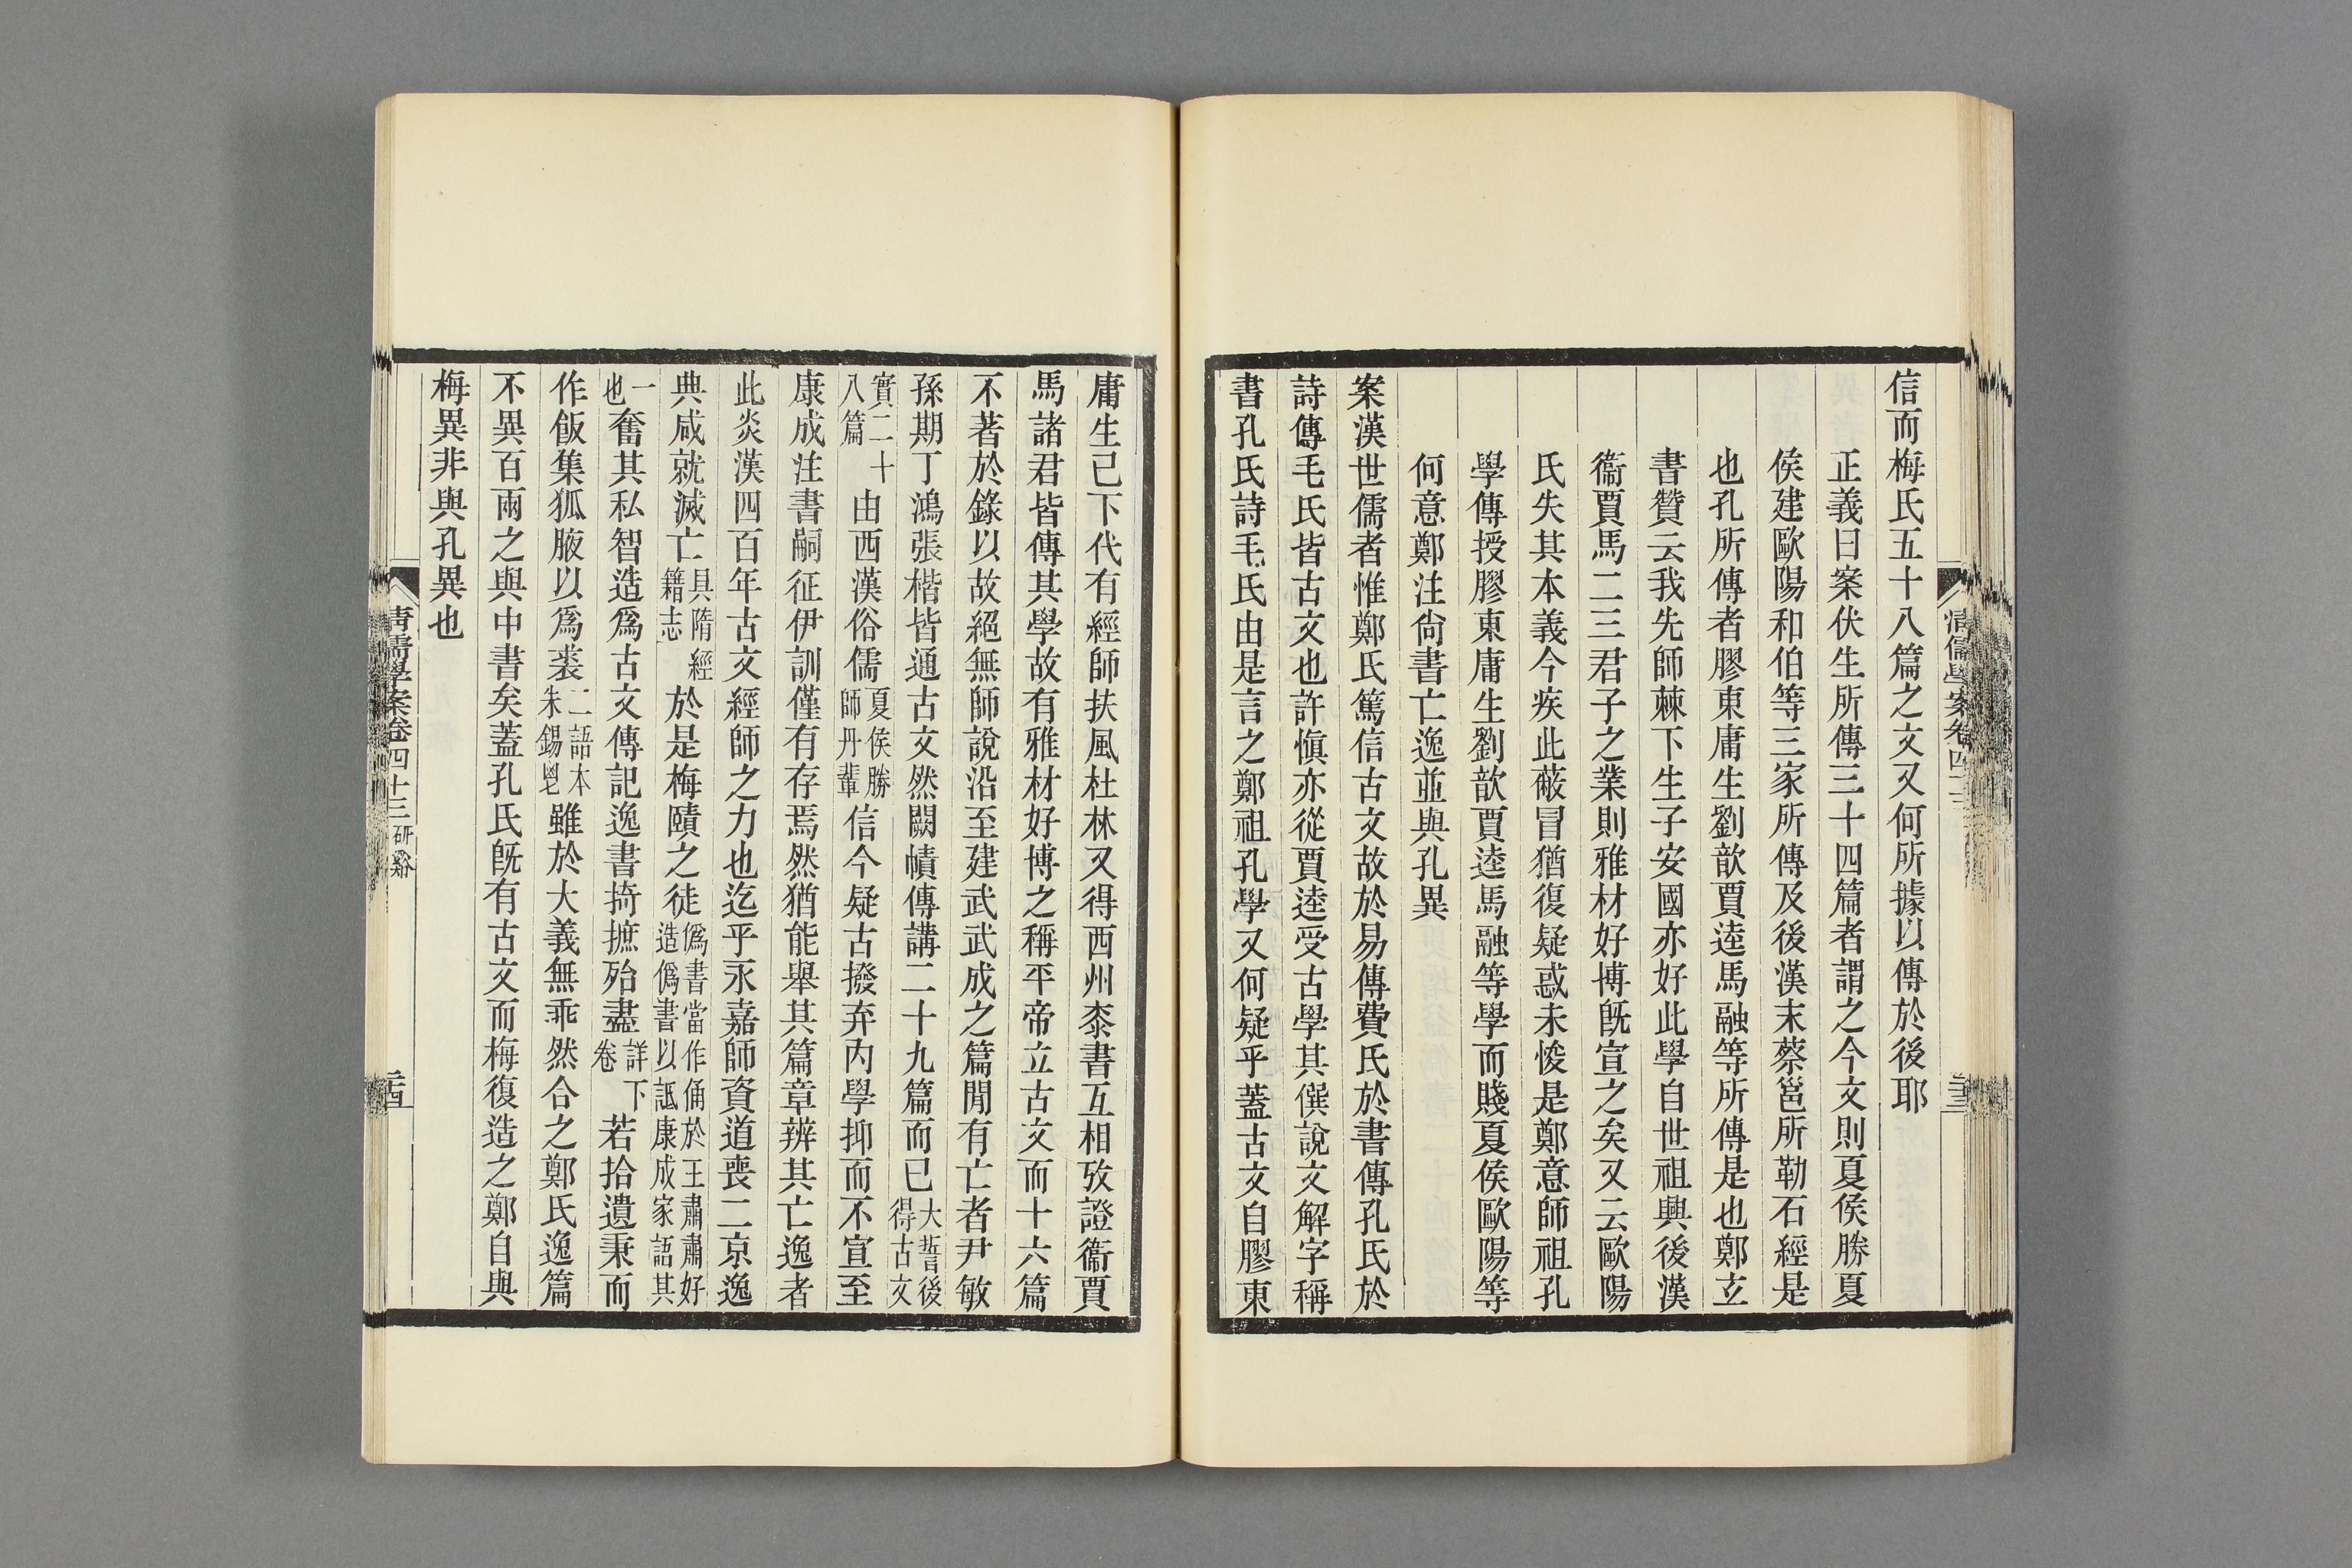 信而梅氏五十八篇之文又何所據以傳於後耶
正義曰案伏生所傳三十四篇者謂之今文則夏侯勝夏
侯建歐陽和伯等三家所傳及後漢末蔡邕所勒石經是
也孔所傳者膠東庸生劉歆賈逵馬融等所傳是也鄭玄
書贊云我先師棘下生子安國亦好此學自世祖興後漢
衞賈馬二三君子之業則雅材好博旣宣之矣又云歐陽
氏失其本義今疾此蔽冒猶復疑惑未悛是鄭意師祖孔
學傳授膠東庸生劉歆賈逵馬融等學而賤夏侯歐陽等
何意鄭注尙書亡逸並與孔異
案漢世儒者惟鄭氏篤信古文故於易傳費氏於書傳孔氏於
詩傳毛氏皆古文也許愼亦從賈逵受古學其僎說文解字稱
書孔氏詩毛氏由是言之鄭祖孔學又何疑乎蓋古文自膠東
清儒學案卷四十三
二十三
庸生已下代有經師扶風杜林又得西州桼書互相攷證衞賈
馬諸君皆傳其學故有雅材好博之稱平帝立古文而十六篇
不著於錄以故絕無師說沿至建武武成之篇閒有亡者尹敏
孫期丁鴻張楷皆通古文然闕幘傳講二十九篇而已大誓後得古文
實二十八篇由西漢俗儒夏侯勝師丹輩信今疑古撥弃內學抑而不宣至
康成注書嗣征伊訓僅有存焉然猶能舉其篇章辨其亡逸者
此炎漢四百年古文經師之力也迄乎永嘉師資道喪二京逸
典咸就滅亡具隋經籍志於是梅賾之徒僞書當作俑於王肅肅好造僞書以詆康成家語其
一也奮其私智造爲古文傳記逸書掎摭殆盡詳下卷若拾遺秉而
作飯集狐腋以爲裘二語本朱錫鬯雖於大義無乖然合之鄭氏逸篇
不異百兩之與中書矣蓋孔氏旣有古文而梅復造之鄭自與
梅異非與孔異也
清儒學案卷四十三 研谿
二十四